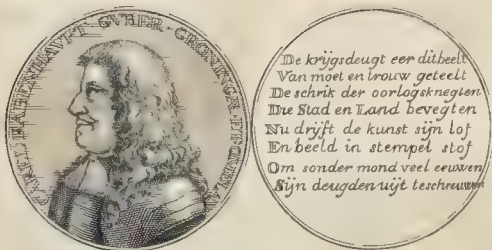 RABENHAVPT GVBER · GRONINGÆ · ET
De krijgsdeugt eer dit beelt
Van moet en trouw geteelt
De schrik der oorlogsknegten
Die Stad en Land bevegten
Nu drijft de kunst sijn lof
En beeld in stempel stof
Om sonder mond veel eeuwen
Sijn deugden uijt teschreuwen